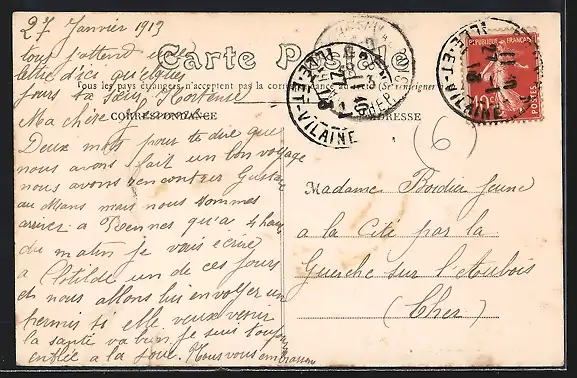 27 Janvier 1913
tous j'attend une
lettre d'ici quelques
jours ta sœur Hortense
Carte Postale
Tous les pays étrangers n'acceptent pas la correspondance au recto (Se renseigner
CORRESPONDANCE
ADRESSE
Ma chère
Deux mots pour te dire que
nous avons fait un bon voyage
nous avons rencontrer Gustave
au Mans mais nous sommes
arriver a Rennes qu'a 4 h
du matin je vais écrire
a Clotilde un de ces jours
et nous allons lui envoyer un
permis si elle veux venir
la santé va bien je suis toujours
enflée a la joue. Nous vous embrassons
(6)
Madame Bordier Jeune
a la Cité par la
Guerche sur l'Aubois
(Cher)
ILLE-ET-VILAINE
ILLE-ET-VILAINE
CHER
REPUBLIQUE FRANCAISE
10c
POSTES